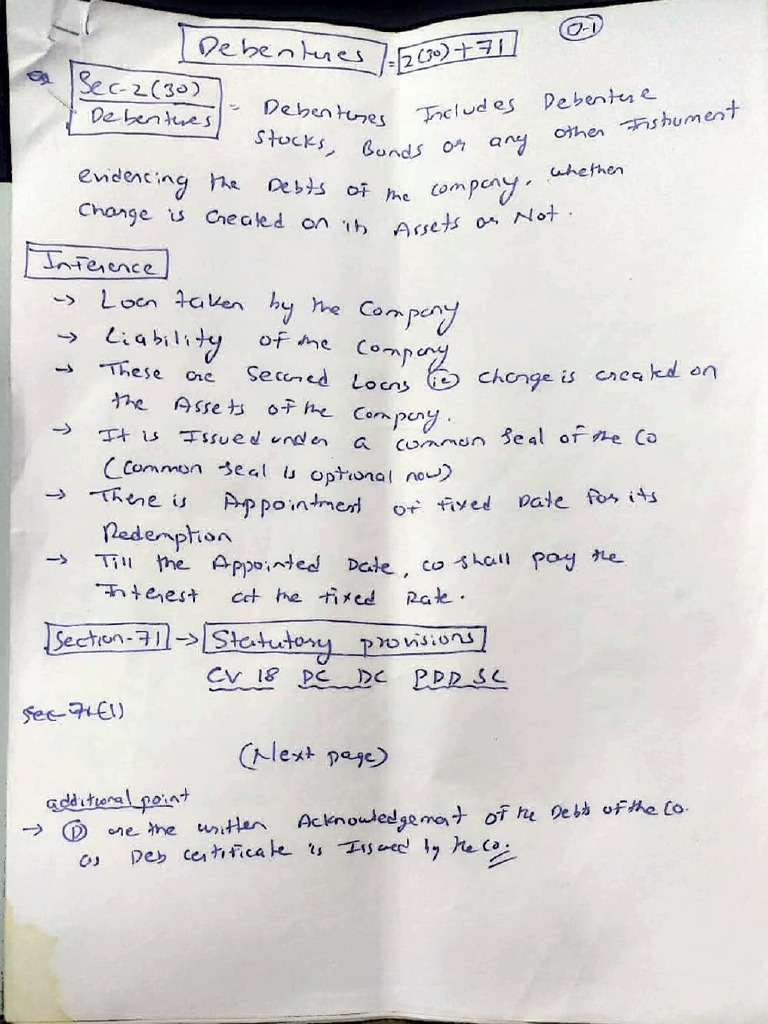 D-1
Debentures = 2(30)+71
Sec-2(30)
Debentures = Debentures Includes Debenture
Stocks, Bonds or any other Instrument
evidencing the Debts of the company, whether
Charge is Created on its Assets or Not.
Inference
→ Loan taken by the Company
→ Liability of the Company
→ These are Secured Loans (ie) charge is created on
the Assets of the Company.
→ It is Issued under a common Seal of the Co
(Common seal is optional now)
→ There is Appointment of fixed Date for its
Redemption
→ Till the Appointed Date, co shall pay the
Interest at the fixed Rate.
Section-71 → Statutory provisions
CV 18 DC DC PDD SC
Sec-71(1)
(Next page)
additional point
→ (D) are the written Acknowledgement of the Debts of the Co.
as Deb certificate is Issued by the Co.